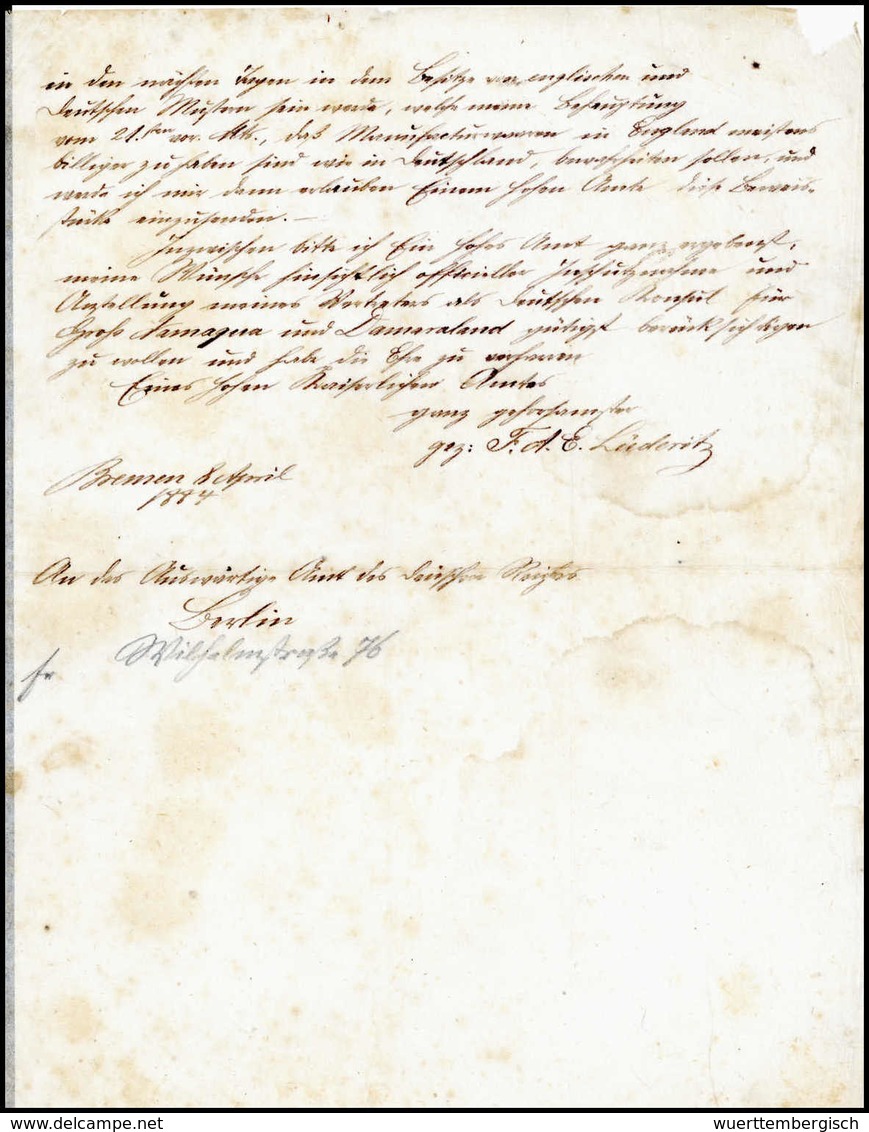 in den nächsten Tagen in dem Besitze von englischen und
deutschen Mustern sein werde, welche meine Behauptung
vom 21.sten vor. Mts., daß Manufacturwaaren in England meistens
billiger zu haben sind wie in Deutschland, bewahrheiten sollen, und
werde ich mir dann erlauben Einem hohen Amte diese Beweis-
stücke einzusenden. —
Inzwischen bitte ich Ein hohes Amt ganz ergebenst,
meine Wünsche hinsichtlich officieller Inschutznahme und
Anstellung meines Vertreters als deutschen Konsul für
Groß Namaqua und Damaraland gütigst berücksichtigen
zu wollen und habe die Ehre zu verharren
Eines hohen Kaiserlichen Amtes
ganz gehorsamster
gez: F. A. E. Lüderitz
Bremen 8 April
1884
An das Auswärtige Amt des deutschen Reiches
Berlin
Wilhelmstraße 76
wuerttembergisch